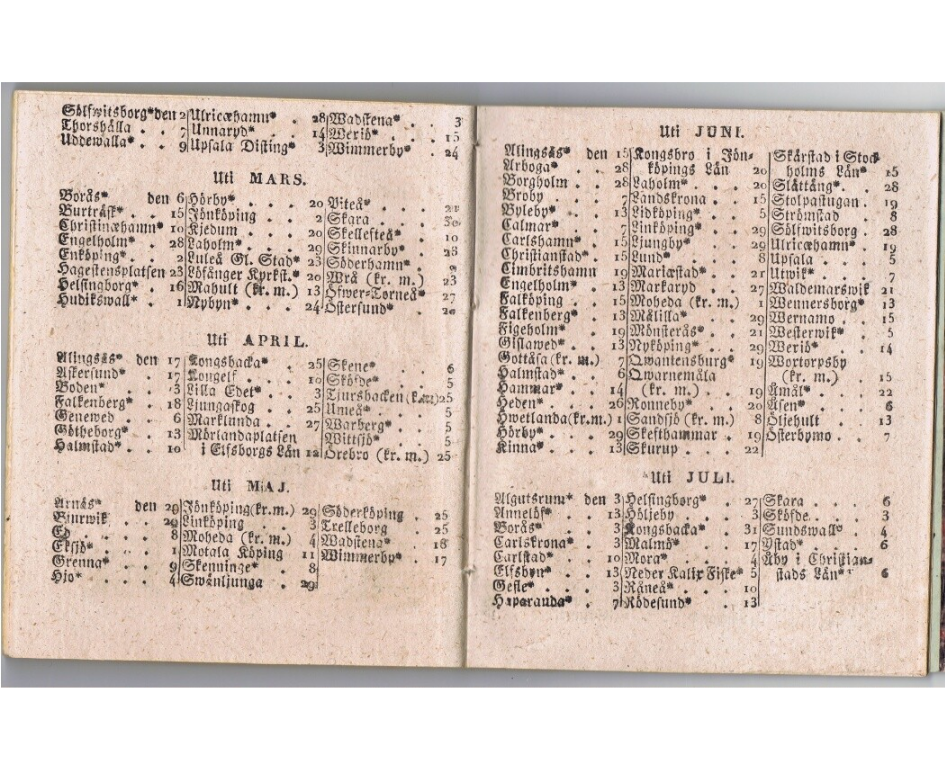 Sölfwitsborg*den 2 Ulricæhamn* . 28 Wadstena* . . 3
Thorshälla . . 7 Unnaryd* . . 14 Wexiö* . . 15
Uddewalla* . . 9 Upsala Disting* 3 Wimmerby* . . 24
Uti MARS.
Borås* den 6 Hörby* . . 20 Piteå* . .
Burträsk* . . 15 Jönköping . . 2 Skara . .
Christinæhamn* 10 Kjedum . . 20 Skellefteå* . . 10
Engelholm* . 28 Laholm* . . 29 Skinnarby* . . 28
Enköping* . . 2 Luleå Gl. Stad* 23 Söderhamn* . 9
Hagestensplatsen 23 Löfånger Kyrkst.* 20 Wrå (kr. m.) 23
Helsingborg* . 16 Mahult (kr. m.) 13 Öfwer-Torneå* 27
Hudikswall* . 1 Nybyn* . . 24 Östersund* . .
Uti APRIL.
Alingsås* den 17 Kongsbacka* . 25 Skene* . . 6
Askersund* . 17 Kongelf . . 10 Sköfde* . . 5
Boden* . . 3 Lilla Edet* . 3 Tjursbacken (k.m) 25
Falkenberg* . 18 Ljungaskog . 25 Umeå* . . 5
Genewed . . 6 Marklunda . 27 Warberg* . . 5
Götheborg* . 13 Mörlandaplatsen Wittsjö* . . 5
Halmstad* . . 10 i Elfsborgs Län 12 Örebro (kr. m.) 25
Uti MAJ.
Arnäs* den 29 Jönköping(kr.m.) 29 Söderköping . 25
29 Linköping . 3 Trelleborg . 25
Ed . . . 8 Moheda (kr. m.) 4 Wadstena* . . 18
Eksjö* . . 1 Motala Köping 11 Wimmerby* . . 17
Grenna* . . 9 Skenninge* . 8
Hjo* . . . 4 Swänljunga . 29
Uti JUNI.
Alingsås* den 15 Kongsbro i Jön- Skärstad i Stock-
Arboga* . . 28 köpings Län 20 holms Län* 15
Borgholm . . 28 Laholm* . . 20 Slättäng* . . 28
Broby . . 7 Landskrona . 15 Stolpastugan . 19
Byleby* . . 13 Lidköping* . 5 Strömstad . 8
Calmar* . . 7 Linköping* . 29 Sölfwitsborg . 28
Carlshamn* . 15 Ljungby* . 29 Ulricæhamn* . 19
Christianstad* . 15 Lund* . . 8 Upsala . . 5
Cimbritshamn 19 Mariæstad* . 21 Utwik* . . 7
Engelholm* . 13 Markaryd . 27 Waldemarswik 21
Falköping . 15 Moheda (kr. m.) 1 Wennersborg* . 13
Falkenberg* . 13 Målilla* . 29 Wernamo . . 15
Figeholm* . 19 Mönsterås* . 21 Westerwik* . 5
Gislawed* . 13 Nyköping* . 29 Wexiö* . . 14
Gottåsa(kr. m.) 7 Qwantensburg* 19 Wortorpsby
Halmstad* . 6 Qwarnemåla (kr. m.) . 15
Hammar* . . 14 (kr. m.) . 19 Åmål* . . 22
Heden* . . 26 Ronneby* . 20 Åsen* . . 6
Hwetlanda(kr.m.) 1 Sandsjö (kr. m.) 8 Öljehult . . 13
Hörby* . . 29 Skefthammar . 19 Österbymo . . 7
Kinna* . . 13 Skurup . . 22
Uti JULI.
Algutsrum* den 3 Helsingborg* . 27 Skara . . . 6
Annelöf* . . 13 Höljeby* . 3 Sköfde* . . 3
Borås* . . 3 Kongsbacka* 31 Sundswall* . 4
Carlskrona* . 3 Malmö* . . 17 Ystad* . . 6
Carlstad* . . 10 Mora* . . 4 Åby i Christian-
Elfsbyn* . . 13 Neder Kalix Fiske* 5 stads Län* . 6
Gefle* . . 3 Råneå* . . 10
Haparanda* . 7 Rödesund* . 13